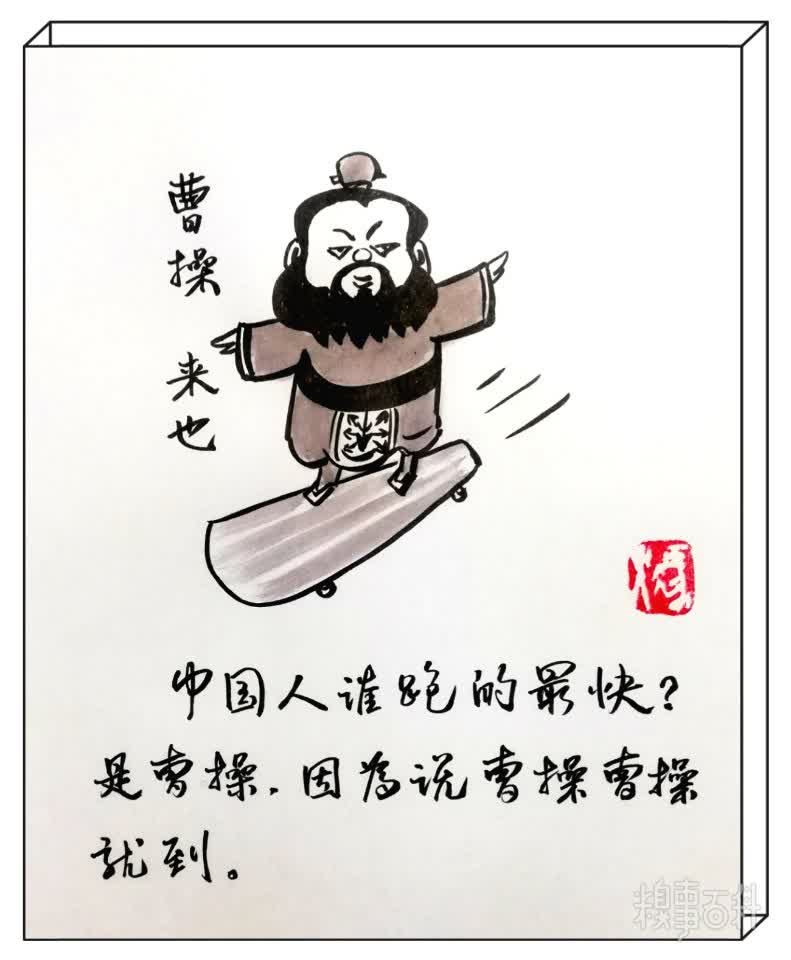 曹操
来也
中国人谁跑的最快?
是曹操.因为说曹操曹操
就到。
糗事百科